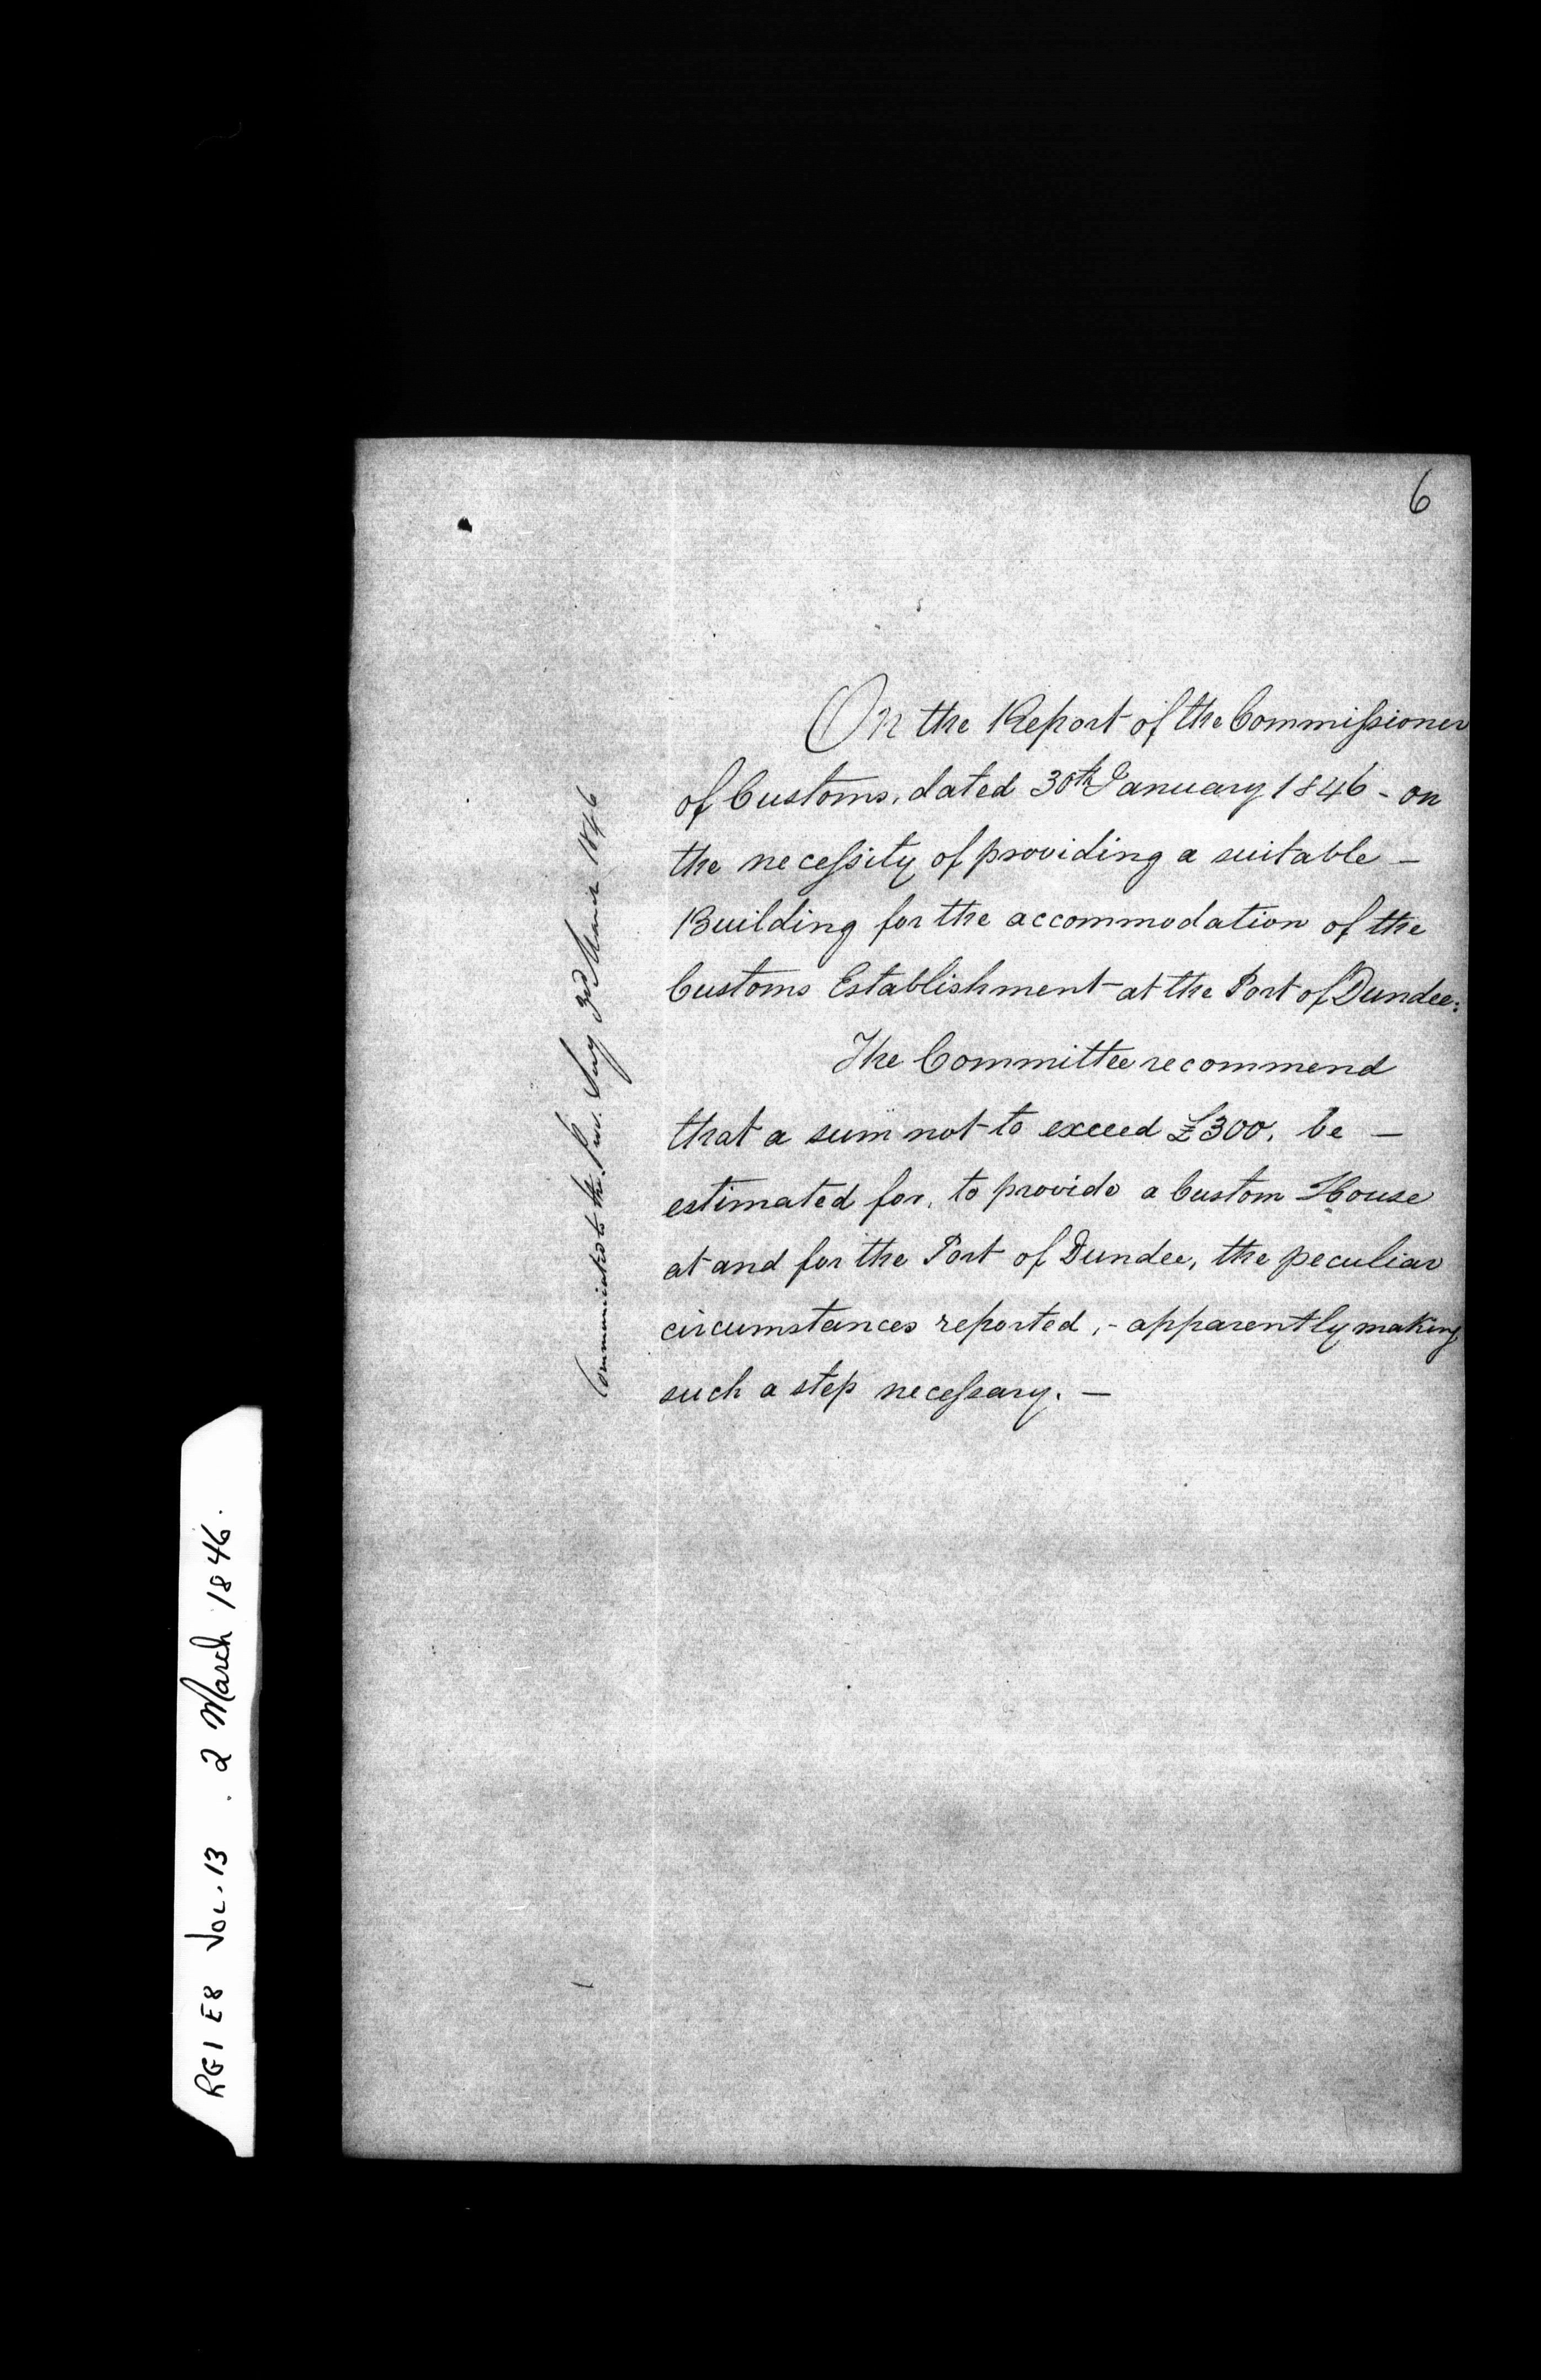 6
On the Report of the Commissioner
of Customs, dated 30th January 1846 - on
the necessity of providing a suitable —
Building for the accommodation of the
Customs Establishment at the Port of Dundee:
The Committee recommend
that a sum not to exceed £300, be —
estimated for, to provide a Custom House
at and for the Port of Dundee, the peculiar
circumstances reported, - apparently making
such a step necessary. —
Communicated to the Prov. Secy 3rd March 1846
RG1 E8 VOL. 13 . 2 March 1846.